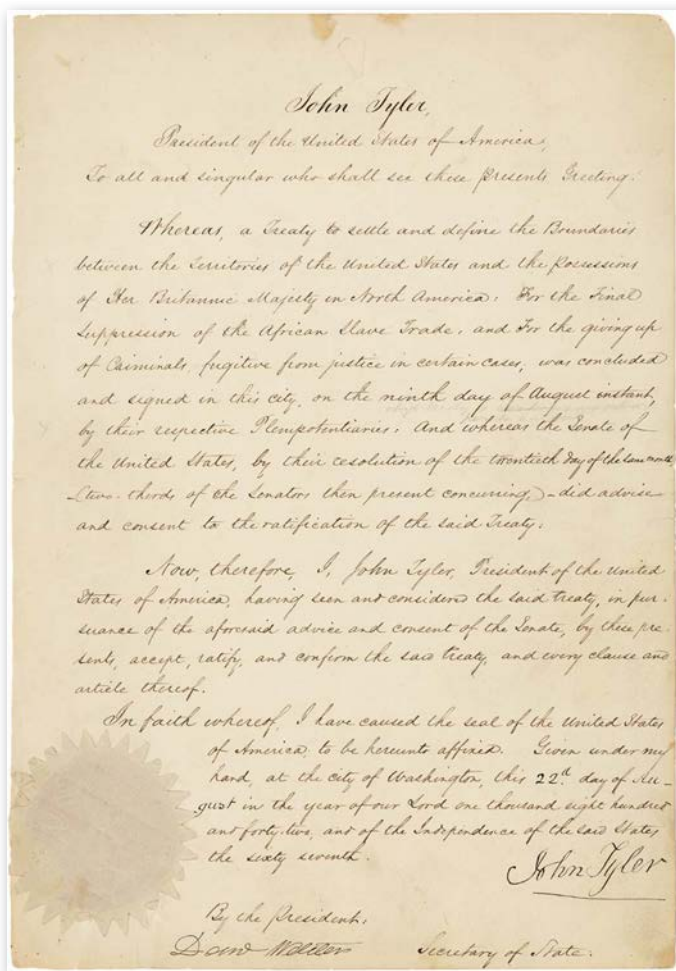 John Tyler,
President of the United States of America,
To all and singular who shall see these presents Greeting:
Whereas, a Treaty to settle and define the Boundaries
between the Territories of the United States and the possessions
of Her Britannic Majesty in North America: For the Final
Suppression of the African Slave Trade: and For the giving up
of Criminals, fugitive from justice in certain cases, was concluded
and signed in this city, on the ninth day of August instant,
by their respective Plenipotentiaries: And whereas the Senate of
the United States, by their resolution of the twentieth day of the same month
(two-thirds of the Senators then present concurring,)- did advise
and consent to the ratification of the said Treaty:
Now, therefore, I, John Tyler, President of the United
States of America, having seen and considered the said treaty, in pur-
suance of the aforesaid advice and consent of the Senate, by these pre-
sents, accept, ratify, and confirm the said treaty, and every clause and
article thereof.
In faith whereof, I have caused the seal of the United States
of America, to be hereunto affixed. Given under my
hand, at the city of Washington, this 22d. day of Au-
gust in the year of our Lord one thousand eight hundred
and forty-two, and of the Independence of the said States
the sixty seventh.
John Tyler
By the President:
Danl Webster
Secretary of State.